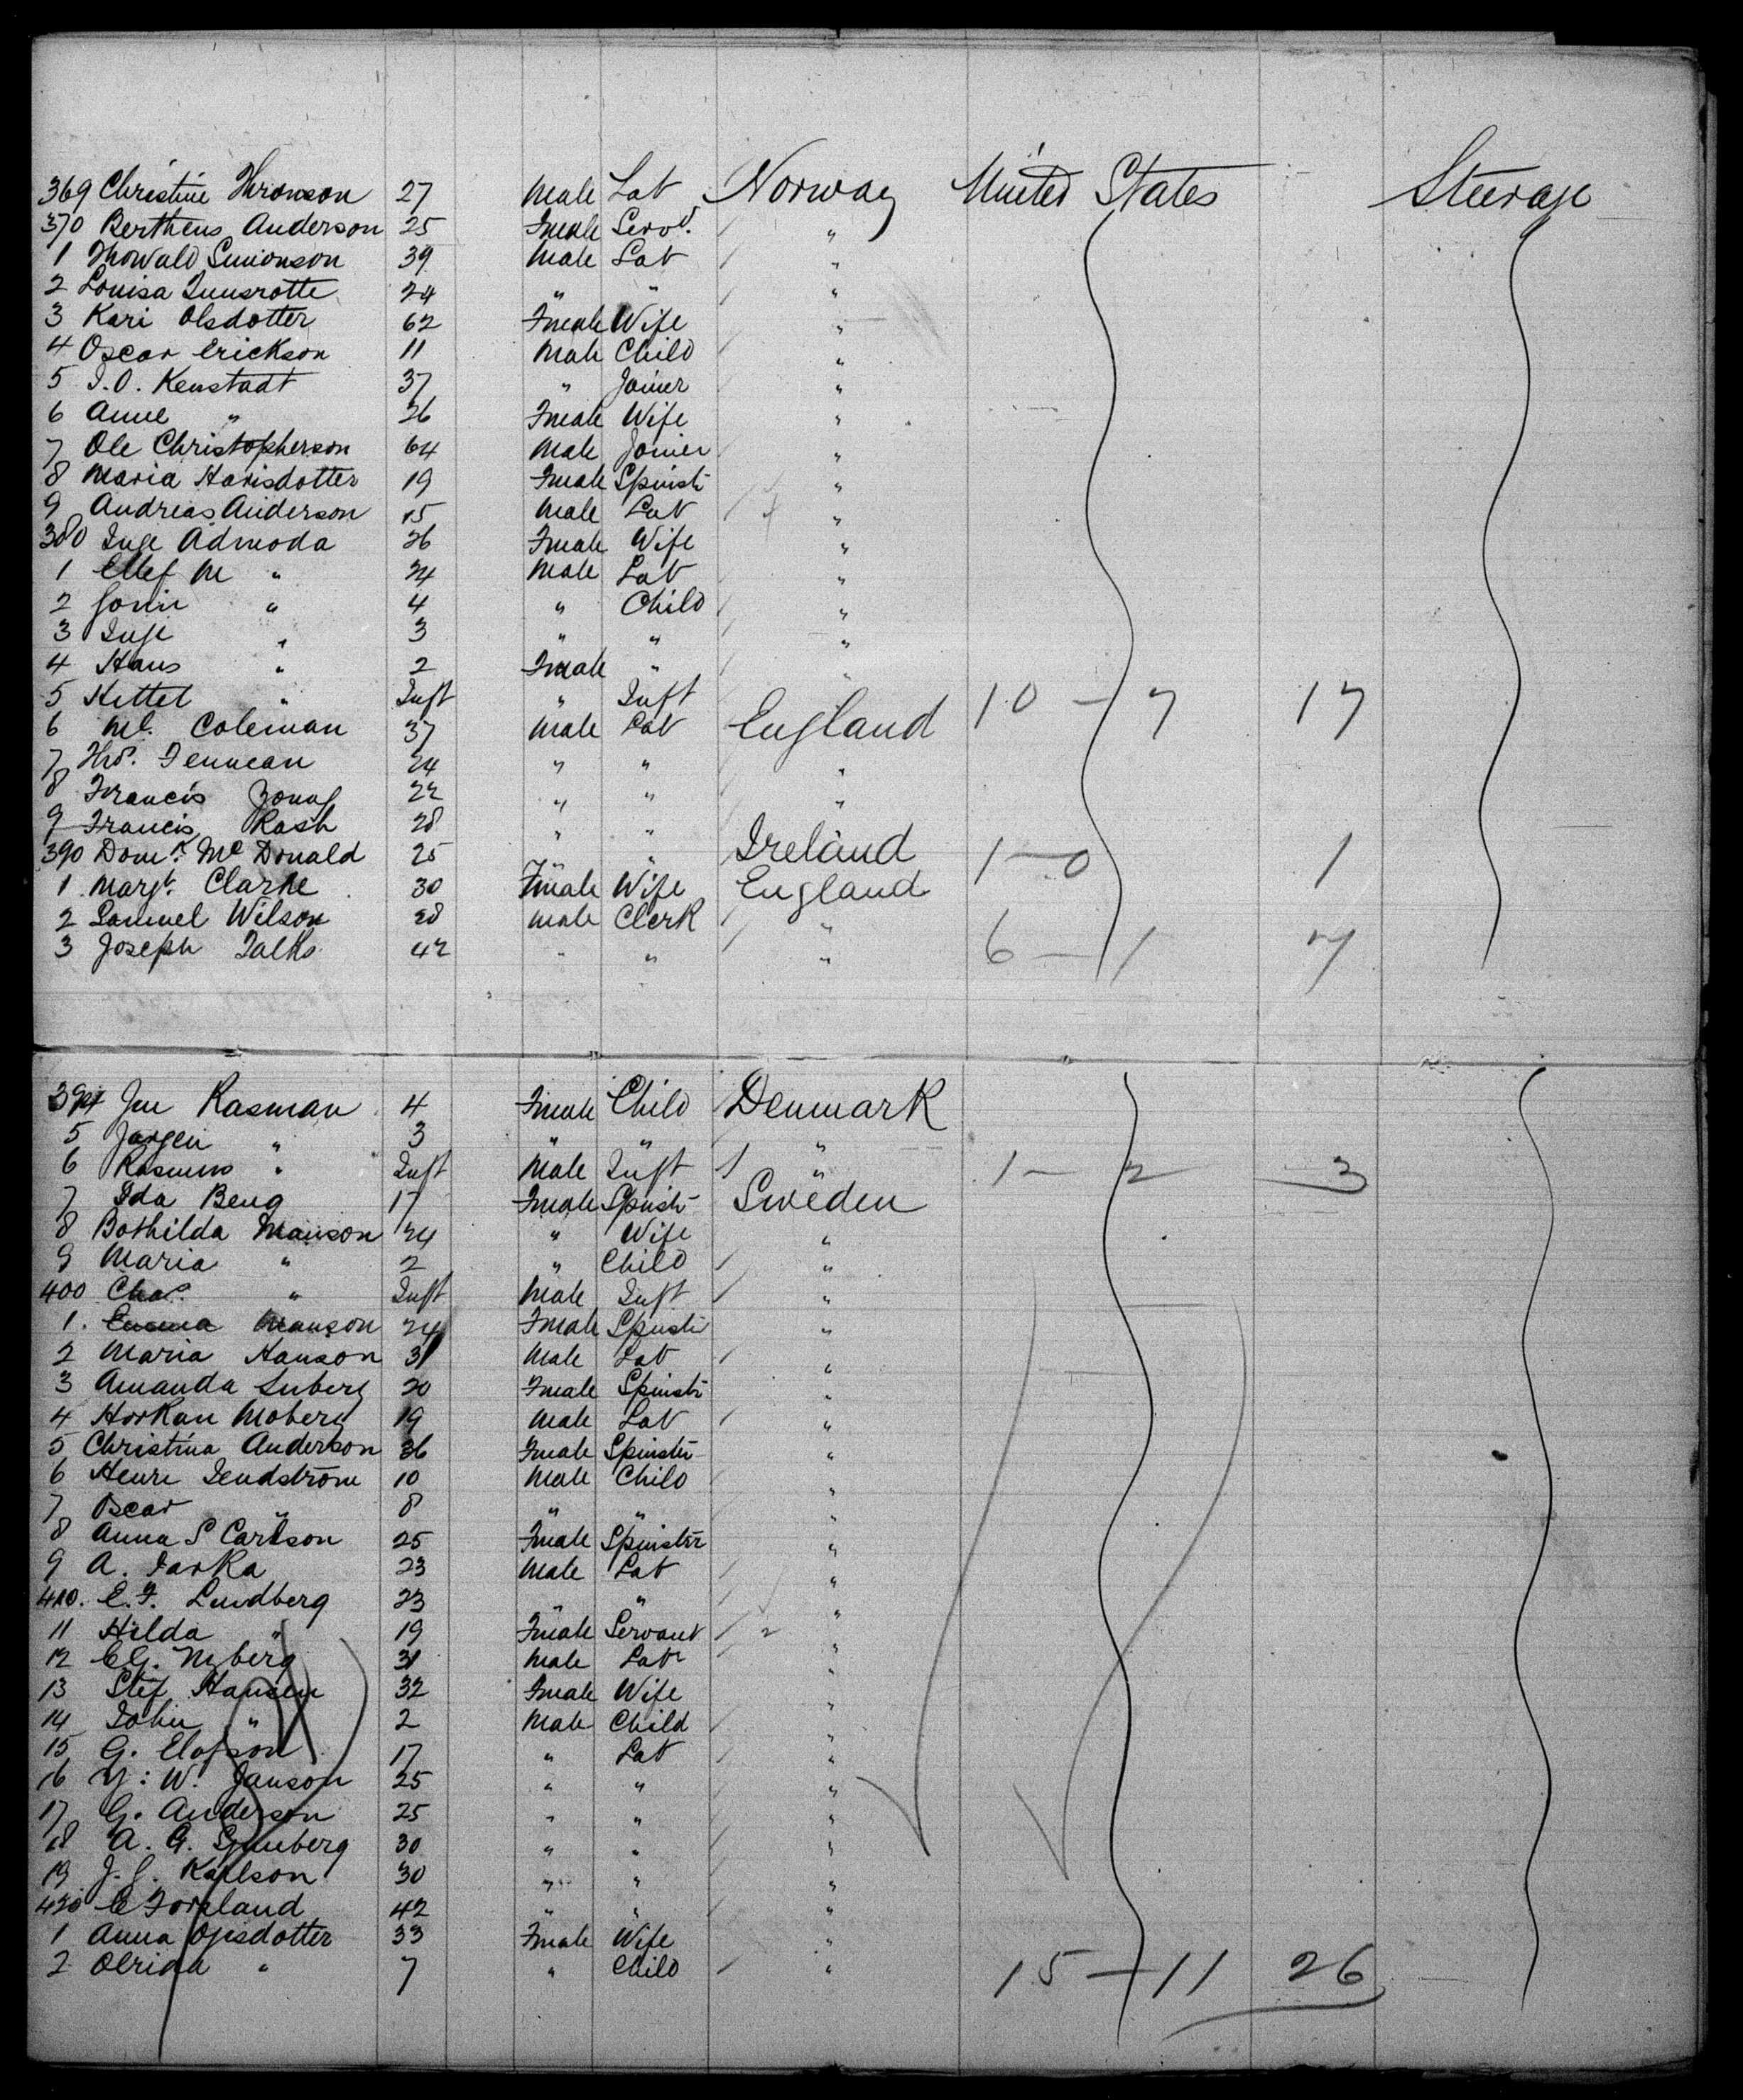 369 Christine Thronson 27 Male Lab Norway United States Steerage
370 Bertheus Anderson 25 Fmale Servt. "
1 Thowald Simonson 39 Male Lab "
2 Louisa 24 " " "
3 Kari Olsdotter 62 Fmale Wife "
4 Oscar Erickson 11 Male Child "
5 I.O. Kenstadt 37 " Joiner "
6 Anne " 26 Fmale Wife "
7 Ole Christopherson 64 Male Joiner "
8 Maria Harisdotter 19 Fmale Spinstr "
9 Andreas Anderson 15 Male Lab "
380 Inge Admoda 26 Fmale Wife "
1 Ellef M " 24 Male Lab "
2 " 4 " Child "
3 Inge " 3 " " "
4 Hans " 2 Fmale " "
5 Kittel " Inft " Inft " 10 - 7 17
6 Ml. Coleman 37 Male Lab England
7 Hrd. Fennean 24 " " "
8 Francis Young 22 " " "
9 Francis Rash 28 " " "
390 Domk. McDonald 25 " " Ireland 1 - 0 1
1 Margt. Clarke 30 Fmale Wife England
2 Samuel Wilson 28 Male Clerk "
3 Joseph Talks 42 " " " 6 - 1 7
394 Jen Rasman 4 Fmale Child Denmark
5 Jorgen " 3 " " "
6 Rasmus " Inft Male Inft " 1 - 2 3
7 Ida Beng 17 Fmale Spinstr Sweden
8 Bothilda Manson 24 " Wife "
9 Maria " 2 " Child "
400 Chas. " Inft Male Inft "
1. Emma Manson 24 Fmale Spinstr "
2 Maria Hanson 31 Male Lab "
3 Amanda Luberg 20 Fmale Spinstr "
4 Horkan Moberg 19 Male Lab "
5 Christina Anderson 36 Fmale Spinstr "
6 Henri Lendström 10 Male Child "
7 Oscar " 8 " " "
8 Anna S Carlson 25 Fmale Spinster "
9 A. Farka 23 Male Lab "
410. E.F. Lundberg 23 " " "
11 Hilda " 19 Fmale Servant "
12 C.G. Nyberg 31 Male Labr "
13 Stef Hansen 32 Fmale Wife "
14 John " 2 Male Child "
15 G. Elofson 17 " Lab "
16 W. Janson 25 " " "
17 G. Anderson 25 " " "
18 A. G. 30 " " "
19 J. G. Karlson 30 " " "
420 C Forsland 42 " " "
1 Anna Opsdotter 33 Fmale Wife "
2 Olrida " 7 " Child " 15 - 11 26